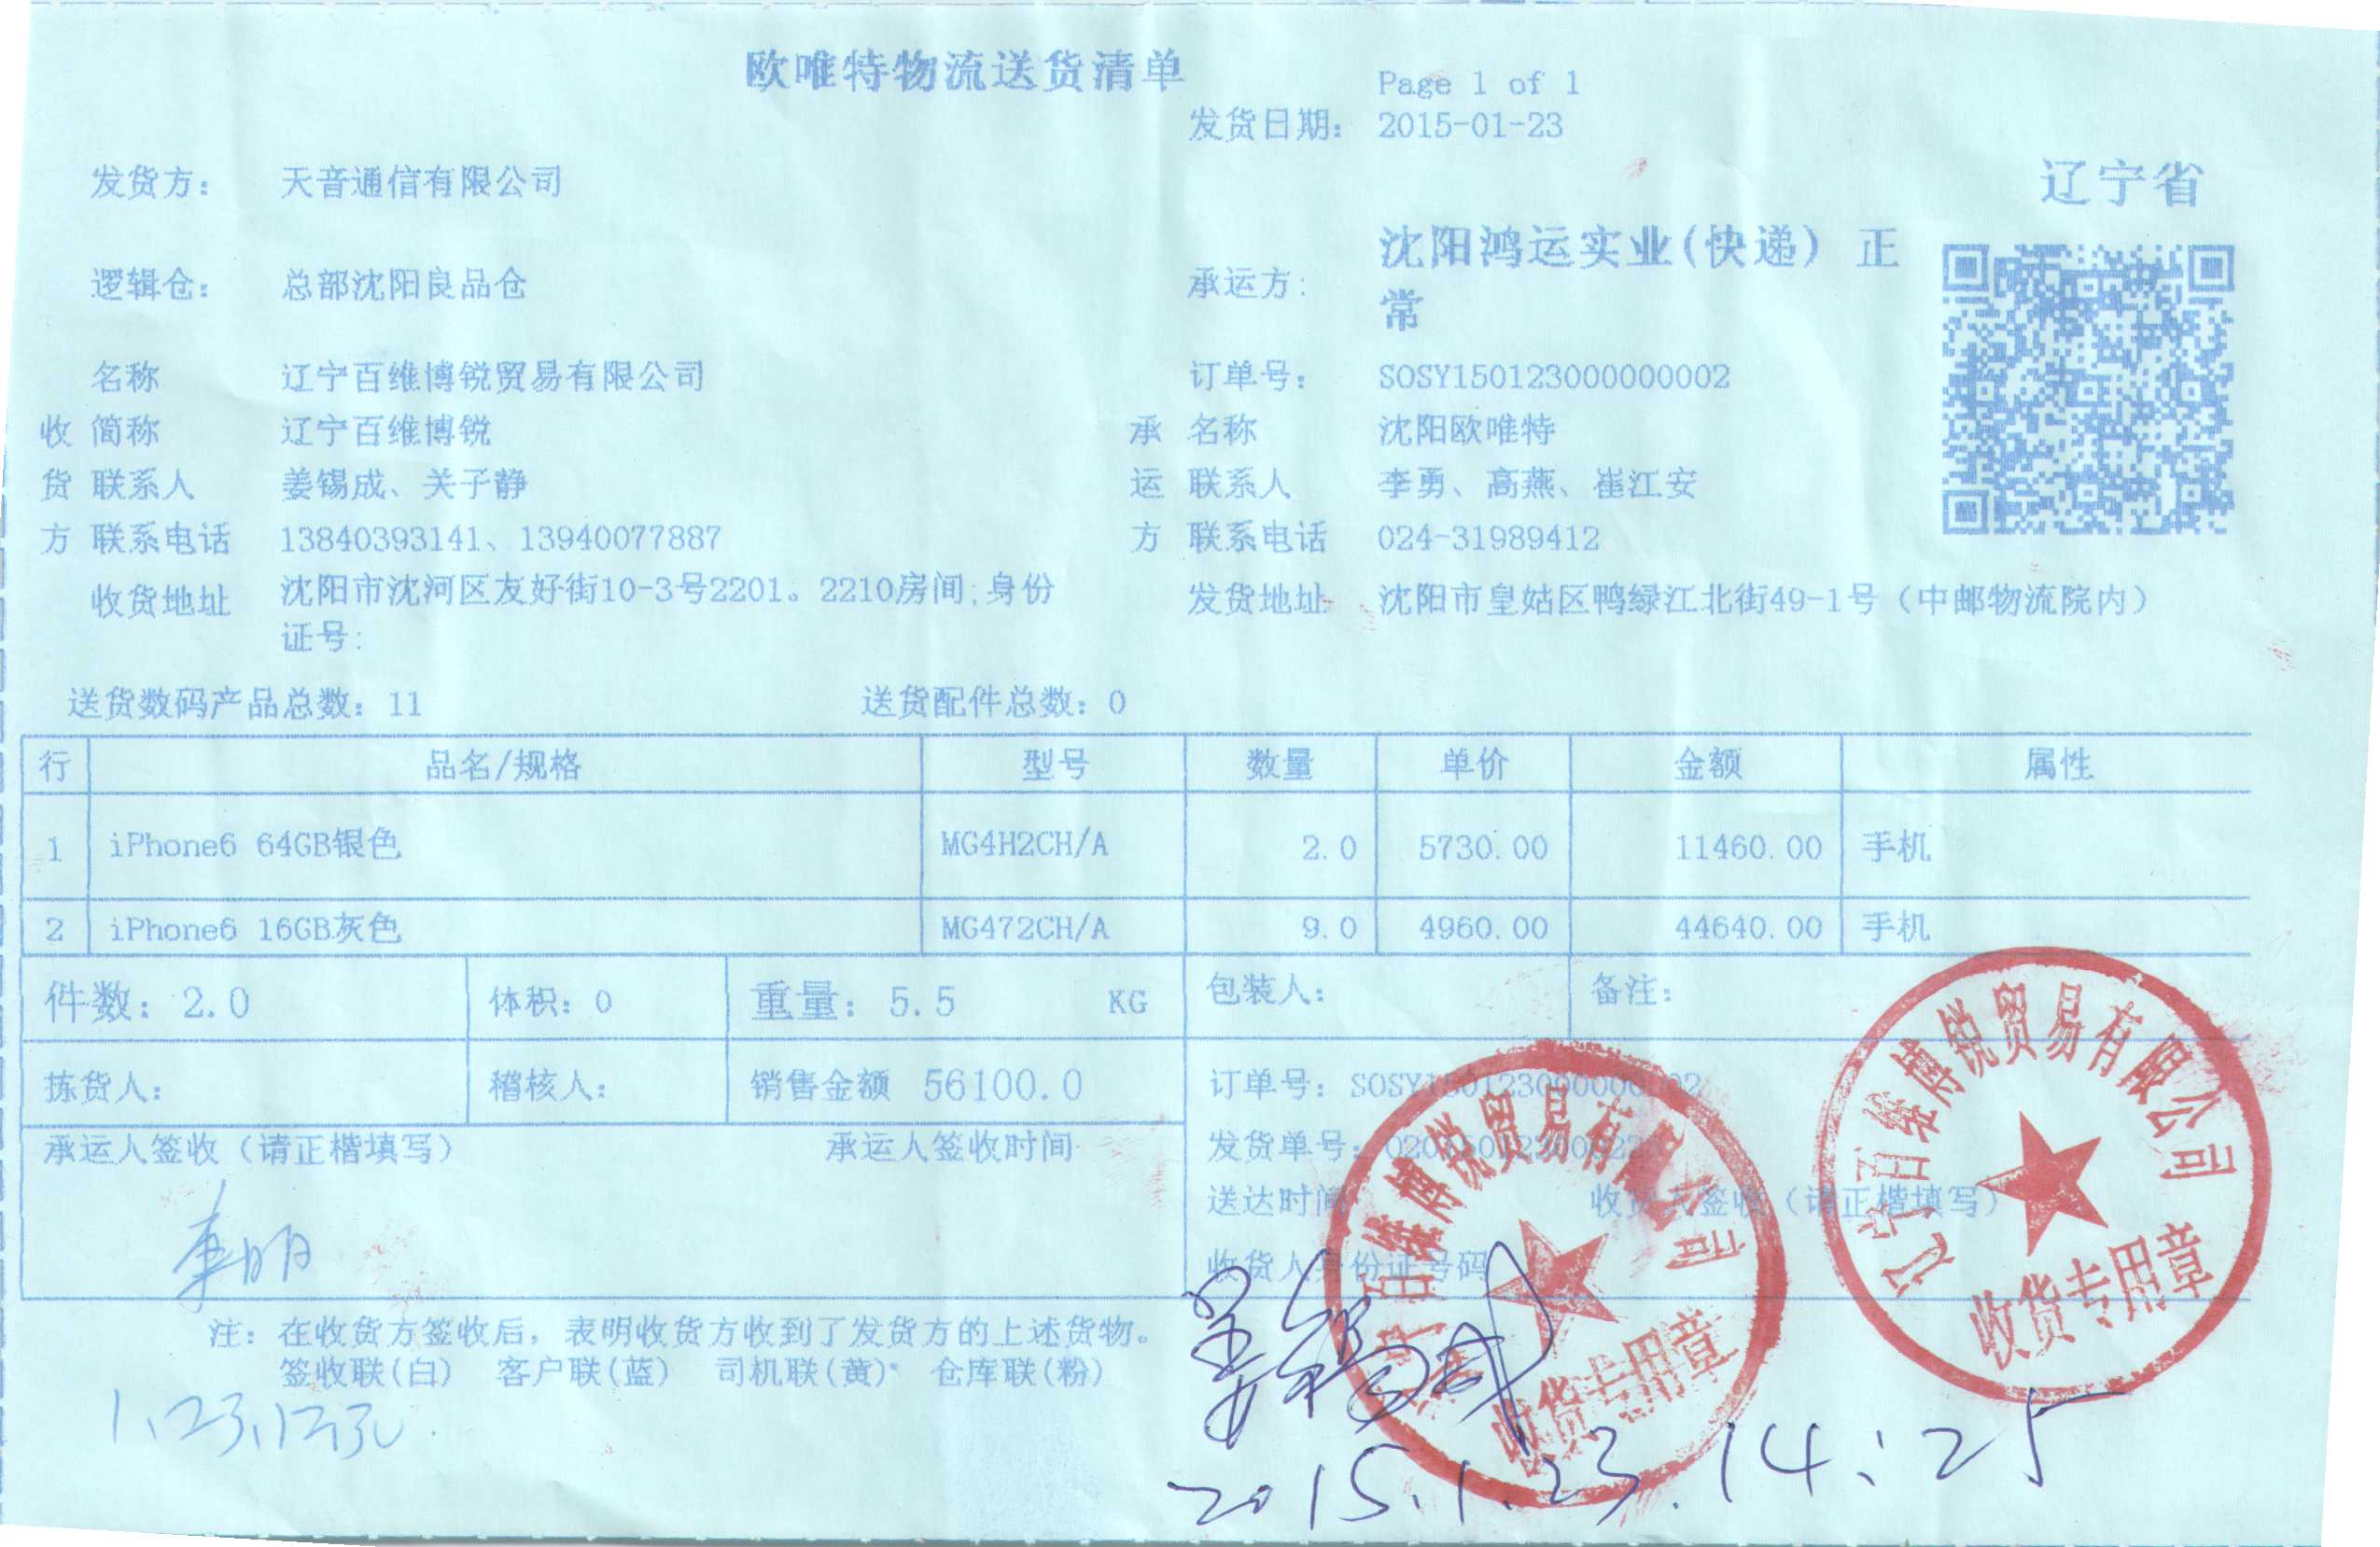 欧唯特物流送货清单
Page 1 of 1
发货日期: 2015-01-23
辽宁省
发货方: 天音通信有限公司
逻辑仓: 总部沈阳良品仓
承运方: 沈阳鸿运实业(快递) 正
常
名称 辽宁百维博锐贸易有限公司 订单号: SOSY150123000000002
收 简称 辽宁百维博锐 承 名称 沈阳欧唯特
货 联系人 姜锡成、关子静 运 联系人 李勇、高燕、崔江安
方 联系电话 13840393141、13940077887 方 联系电话 024-31989412
收货地址 沈阳市沈河区友好街10-3号2201。2210房间;身份
证号:
发货地址 沈阳市皇姑区鸭绿江北街49-1号（中邮物流院内）
送货数码产品总数: 11 送货配件总数: 0
行 品名/规格 型号 数量 单价 金额 属性
1 iPhone6 64GB银色 MG4H2CH/A 2.0 5730.00 11460.00 手机
2 iPhone6 16GB灰色 MG472CH/A 9.0 4960.00 44640.00 手机
件数: 2.0 体积: 0 重量: 5.5 KG 包装人: 备注:
拣货人: 稽核人: 销售金额 56100.0 订单号: SOSY150123000000002
承运人签收（请正楷填写） 承运人签收时间 发货单号:
送达时间 收货人签收（请正楷填写）
收货人身份证号码
注: 在收货方签收后, 表明收货方收到了发货方的上述货物。
签收联(白) 客户联(蓝) 司机联(黄) 仓库联(粉)
姜锡成
2015.1.23.14:25
辽宁百维博锐贸易有限公司
收货专用章
辽宁百维博锐贸易有限公司
收货专用章